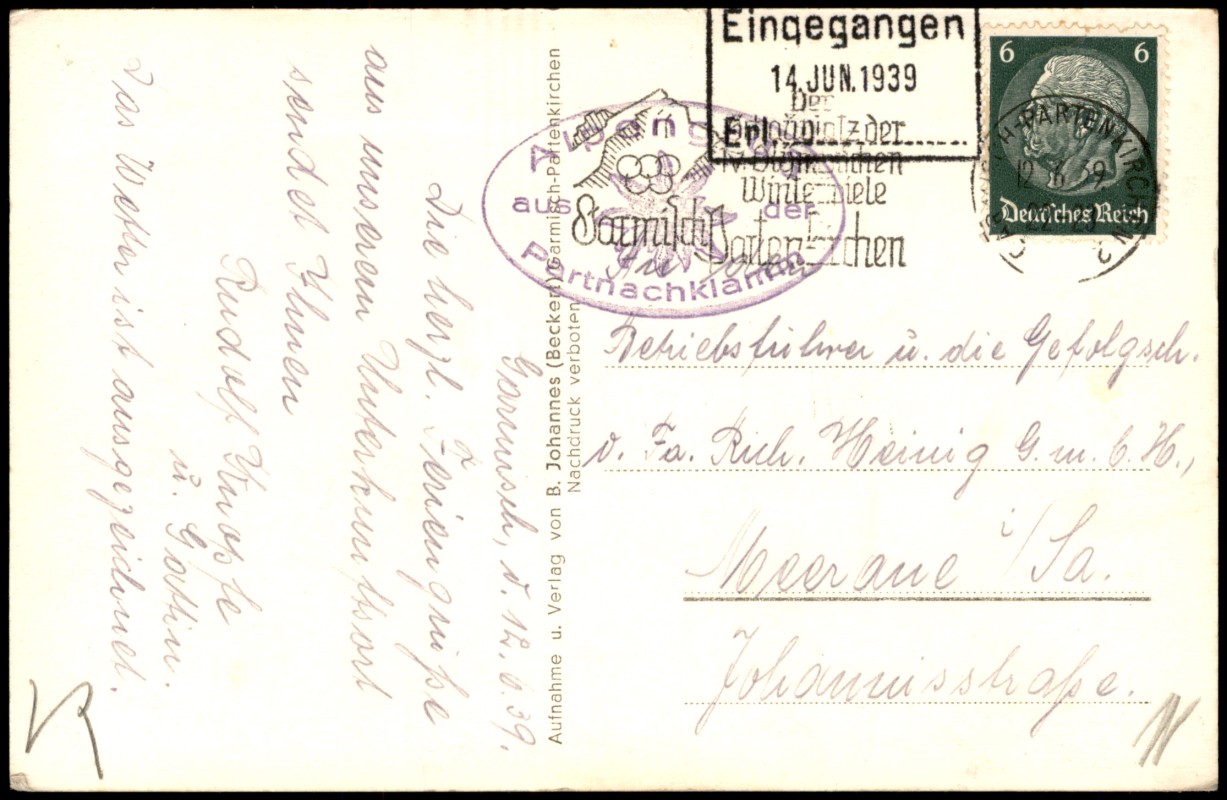 Garmisch, d. 12.6.39.
Die herzl. Feriengrüße
aus unserem Unterkunftsort
sendet Ihnen
Rudolf
u. Gattin.
Das Wetter ist ausgezeichnet.
Aufnahme u. Verlag von B. Johannes (Becker) Garmisch-Partenkirchen
Nachdruck verboten
Alpengruß
aus der
Partnachklamm
Eingegangen
14.JUN.1939
Erl.
Der
Schauplatz der
IV. Olympischen
Winterspiele
Garmisch Partenkirchen
6 6
Deutsches Reich
GARMISCH-PARTENKIRCHEN
12.6.39
An den
Betriebsführer u. die Gefolgsch.
d. Fa. Rich. Heinig G.m.b.H.,
Meerane i/Sa.
Johannisstraße.